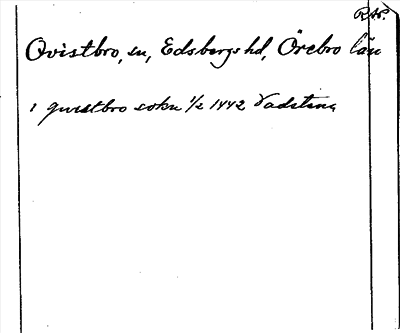 RAP.
Qvistbro, sn, Edsbergs hd, Örebro län
i quistbro sokn 1/2 1442 Vadstena